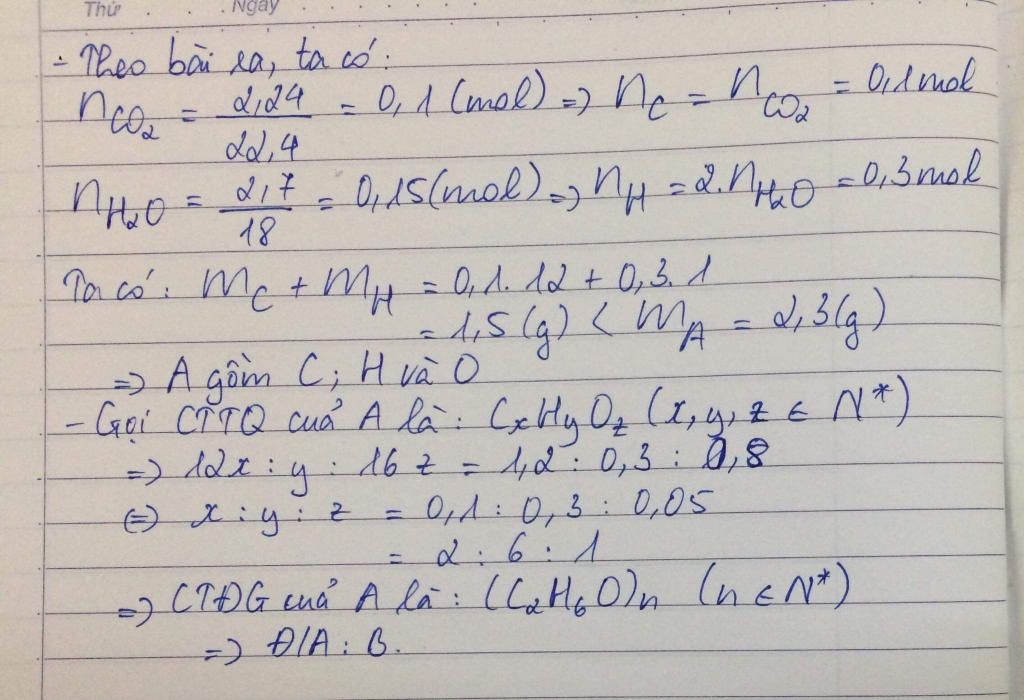 Thứ Ngày
- Theo bài ra, ta có:
n_CO₂ = 2,24/22,4 = 0,1 (mol) => n_C = n_CO₂ = 0,1 mol
n_H₂O = 2,7/18 = 0,15 (mol) => n_H = 2.n_H₂O = 0,3 mol
Ta có: m_C + m_H = 0,1.12 + 0,3.1
= 1,5 (g) < m_A = 2,3 (g)
=> A gồm C; H và O
- Gọi CTTQ cuả A là: CxHyOz (x, y, z ∈ N*)
=> 12x : y : 16z = 1,2 : 0,3 : 0,8
<=> x : y : z = 0,1 : 0,3 : 0,05
= 2 : 6 : 1
=> CTĐG cuả A là: (C₂H₆O)n (n ∈ N*)
=> Đ/A: B.